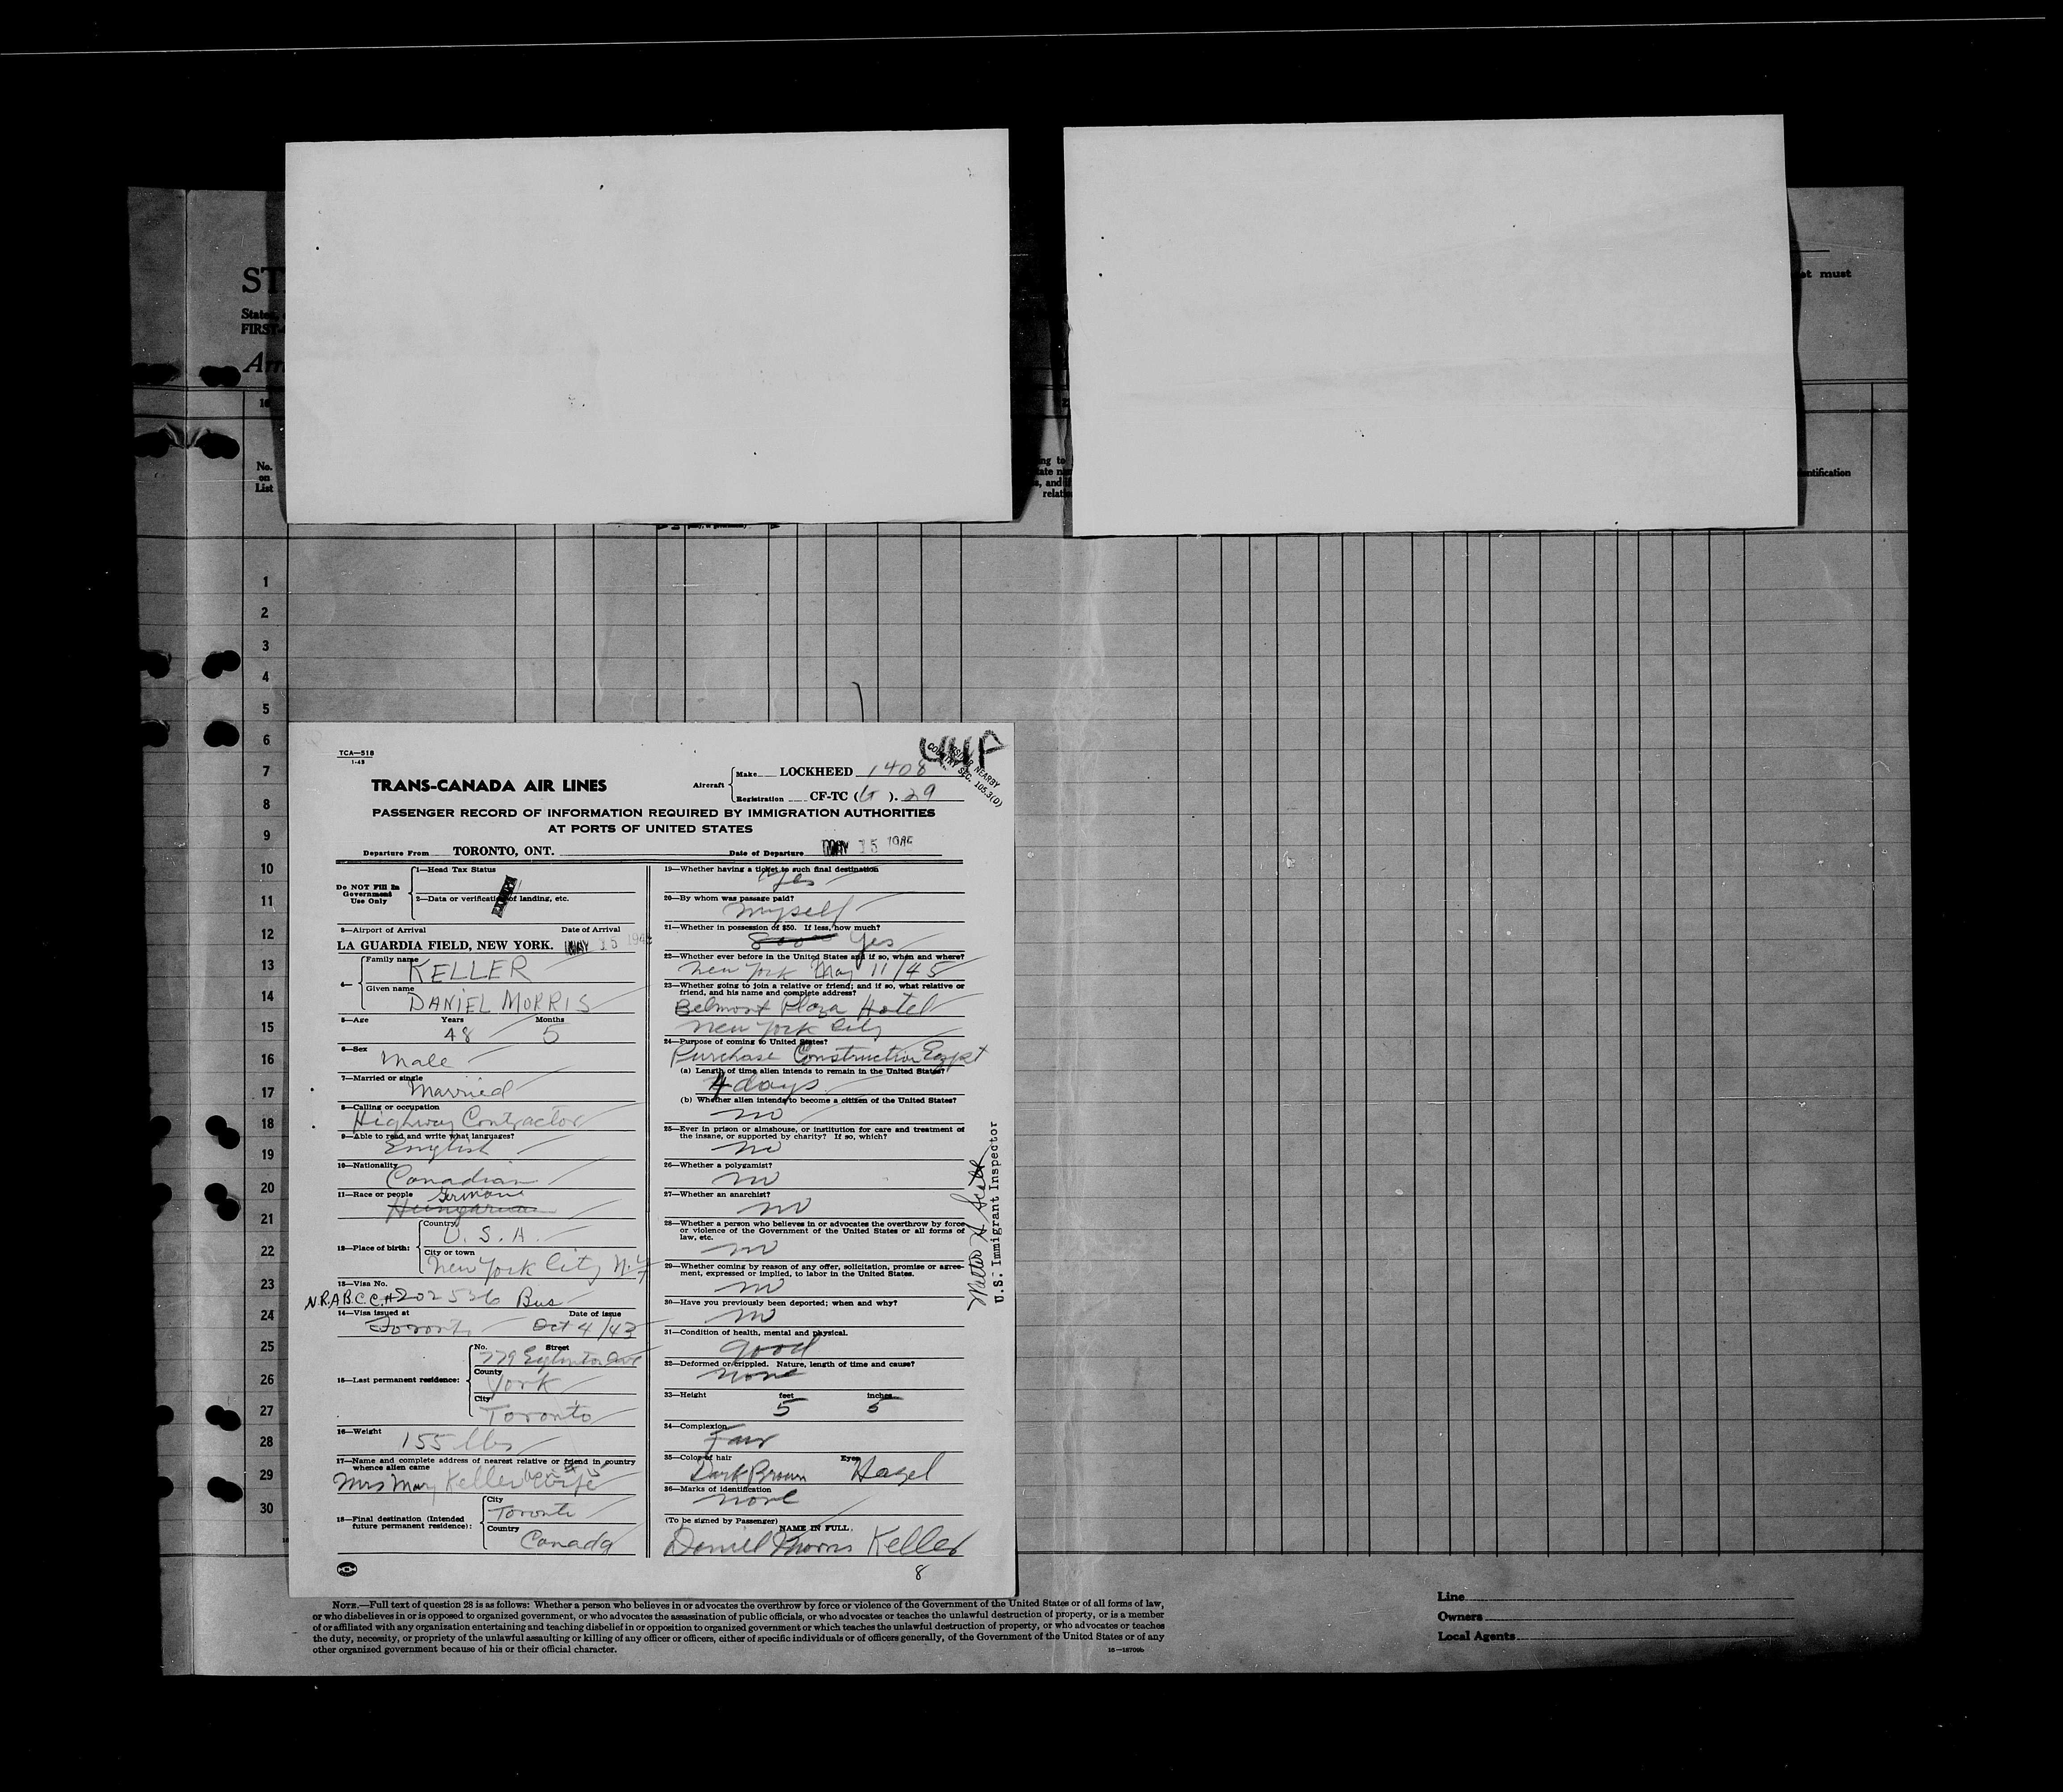 ST
States,
FIRST-
Arr
et must
No.
on
List
ing to
ate
s, and if
relati
entification
1
2
3
4
5
6
7
8
9
10
11
12
13
14
15
16
17
18
19
20
21
22
23
24
25
26
27
28
29
30
TCA—518
1-43
TRANS-CANADA AIR LINES
Aircraft
Make LOCKHEED 1408
Registration CF-TC (G). 29
NEARBY
COUNTRY SEC. 105.3(D)
PASSENGER RECORD OF INFORMATION REQUIRED BY IMMIGRATION AUTHORITIES
AT PORTS OF UNITED STATES
Departure From TORONTO, ONT. Date of Departure MAY 15 1945
Do NOT Fill In
Government
Use Only
1—Head Tax Status
2—Data or verification of landing, etc.
3—Airport of Arrival Date of Arrival
LA GUARDIA FIELD, NEW YORK. MAY 15 194
4— Family name KELLER
Given name DANIEL MORRIS
5—Age Years 48 Months 5
6—Sex Male
7—Married or single Married
8—Calling or occupation
Highway Contractor
9—Able to read and write what languages?
English
10—Nationality
Canadian
11—Race or people German
Hungarian
12—Place of birth: Country U. S. A.
City or town
New York City N.Y
13—Visa No.
N.R.A.B.C.C.# 202536 Bus
14—Visa issued at Date of issue
Toronto Oct 4/43
15—Last permanent residence: No. Street
779 Eglinton Ave
County York
City Toronto
16—Weight 155 lbs
17—Name and complete address of nearest relative or friend in country
whence alien came
Mrs Mary Keller wife
18—Final destination (Intended
future permanent residence):
City Toronto
Country Canada
19—Whether having a ticket to such final destination
Yes
20—By whom was passage paid?
Myself
21—Whether in possession of $50. If less, how much?
Yes
22—Whether ever before in the United States and if so, when and where?
New York May 11/45
23—Whether going to join a relative or friend; and if so, what relative or
friend, and his name and complete address?
Belmont Plaza Hotel
New York City
24—Purpose of coming to United States?
Purchase Construction Eqpt
(a) Length of time alien intends to remain in the United States?
4 days
(b) Whether alien intends to become a citizen of the United States?
no
25—Ever in prison or almshouse, or institution for care and treatment of
the insane, or supported by charity? If so, which?
no
26—Whether a polygamist?
no
27—Whether an anarchist?
no
28—Whether a person who believes in or advocates the overthrow by force
or violence of the Government of the United States or all forms of
law, etc.
no
29—Whether coming by reason of any offer, solicitation, promise or agree-
ment, expressed or implied, to labor in the United States.
no
30—Have you previously been deported; when and why?
no
31—Condition of health, mental and physical.
good
32—Deformed or crippled. Nature, length of time and cause?
none
33—Height feet 5 inches 5
34—Complexion
Fair
35—Color of hair Dark Brown Eyes Hazel
36—Marks of identification
none
(To be signed by Passenger)
NAME IN FULL.
Daniel Morris Keller
8
Walter H Scott
U.S. Immigrant Inspector
NOTE.—Full text of question 28 is as follows: Whether a person who believes in or advocates the overthrow by force or violence of the Government of the United States or of all forms of law,
or who disbelieves in or is opposed to organized government, or who advocates the assassination of public officials, or who advocates or teaches the unlawful destruction of property, or is a member
of or affiliated with any organization entertaining and teaching disbelief in or opposition to organized government or which teaches the unlawful destruction of property, or who advocates or teaches
the duty, necessity, or propriety of the unlawful assaulting or killing of any officer or officers, either of specific individuals or of officers generally, of the Government of the United States or of any
other organized government because of his or their official character.
16—18709b
Line
Owners
Local Agents